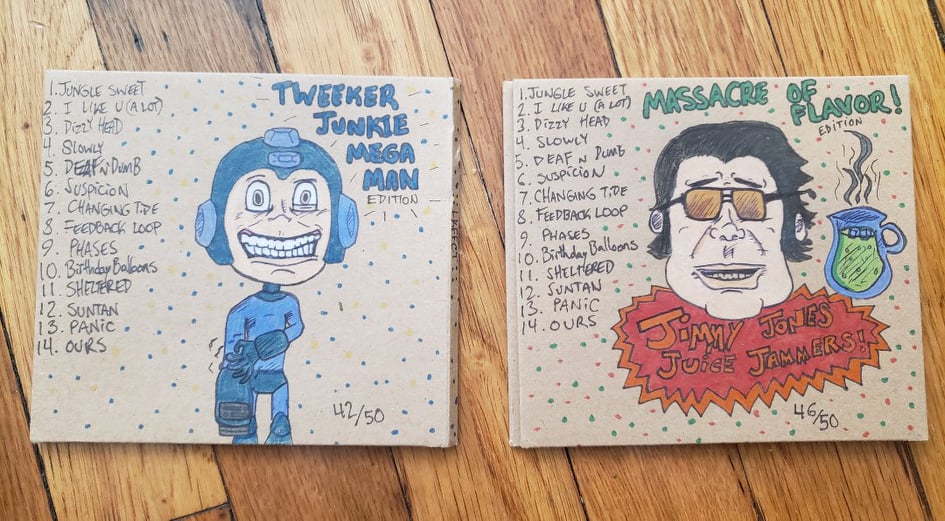 1. JUNGLE SWEET
2. I LIKE U (A LOT)
3. DIZZY HEAD
4. SLOWLY
5. DEAF N DUMB
6. SUSPICION
7. CHANGING TIDE
8. FEEDBACK LOOP
9. PHASES
10. Birthday Balloons
11. SHELTERED
12. SUNTAN
13. PANIC
14. OURS
TWEEKER
JUNKIE
MEGA
MAN
EDITION
42/50
1. JUNGLE SWEET
2. I LIKE U (A LOT)
3. DIZZY HEAD
4. SLOWLY
5. DEAF N DUMB
6. SUSPICION
7. CHANGING TIDE
8. FEEDBACK LOOP
9. PHASES
10. Birthday Balloons
11. SHELTERED
12. SUNTAN
13. PANIC
14. OURS
MASSACRE OF
FLAVOR!
EDITION
JIMMY JONES
JUICE JAMMERS!
46/50